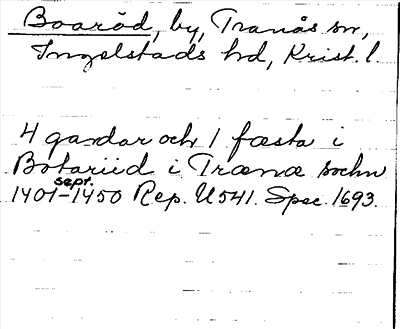 Boaröd, by, Tranås sn,
Ingelstads hd, Krist. l.
4 gardar och 1 fæsta i
Botariid i Trænæ sochn
sept.
1401-1450 Rep. U 541. Spec. 1693.